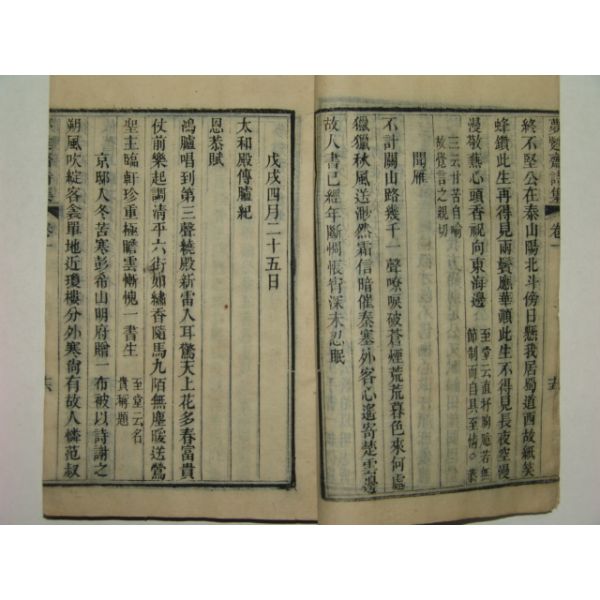 夢
齋詩集
卷一
終不堅公在泰山陽北斗傍日懸我居蜀道西故紙笑
蜂鑽此生再得見兩鬢應華顛此生不得見長夜空漫
漫敬爇心頭香視向東海邊
至堂云直抒胸臆若無
節制而自具至情○
三云甘苦自喻
故覺言之親切
聞雁
不計關山路幾千一聲嘹唳破蒼煙荒荒暮色來何處
獵獵秋風送渺然霜信暗催秦塞外客心遙寄楚雲邊
故人書已經年斷惆悵宵深未忍眠
戊戌四月二十五日
太和殿傳臚紀
恩恭賦
鴻臚唱到第三聲繞殿新雷人耳驚天上花多春富貴
仗前樂起調清平六街如繡香隨馬九陌無塵暖送鶯
聖主臨軒珍重極瞻雲慚愧一書生
至堂云名
貴稱題
京邸人冬苦寒彭希山明府贈一布被以詩謝之
朔風吹綻客衾單地近瓊樓分外寒尚有故人憐范叔